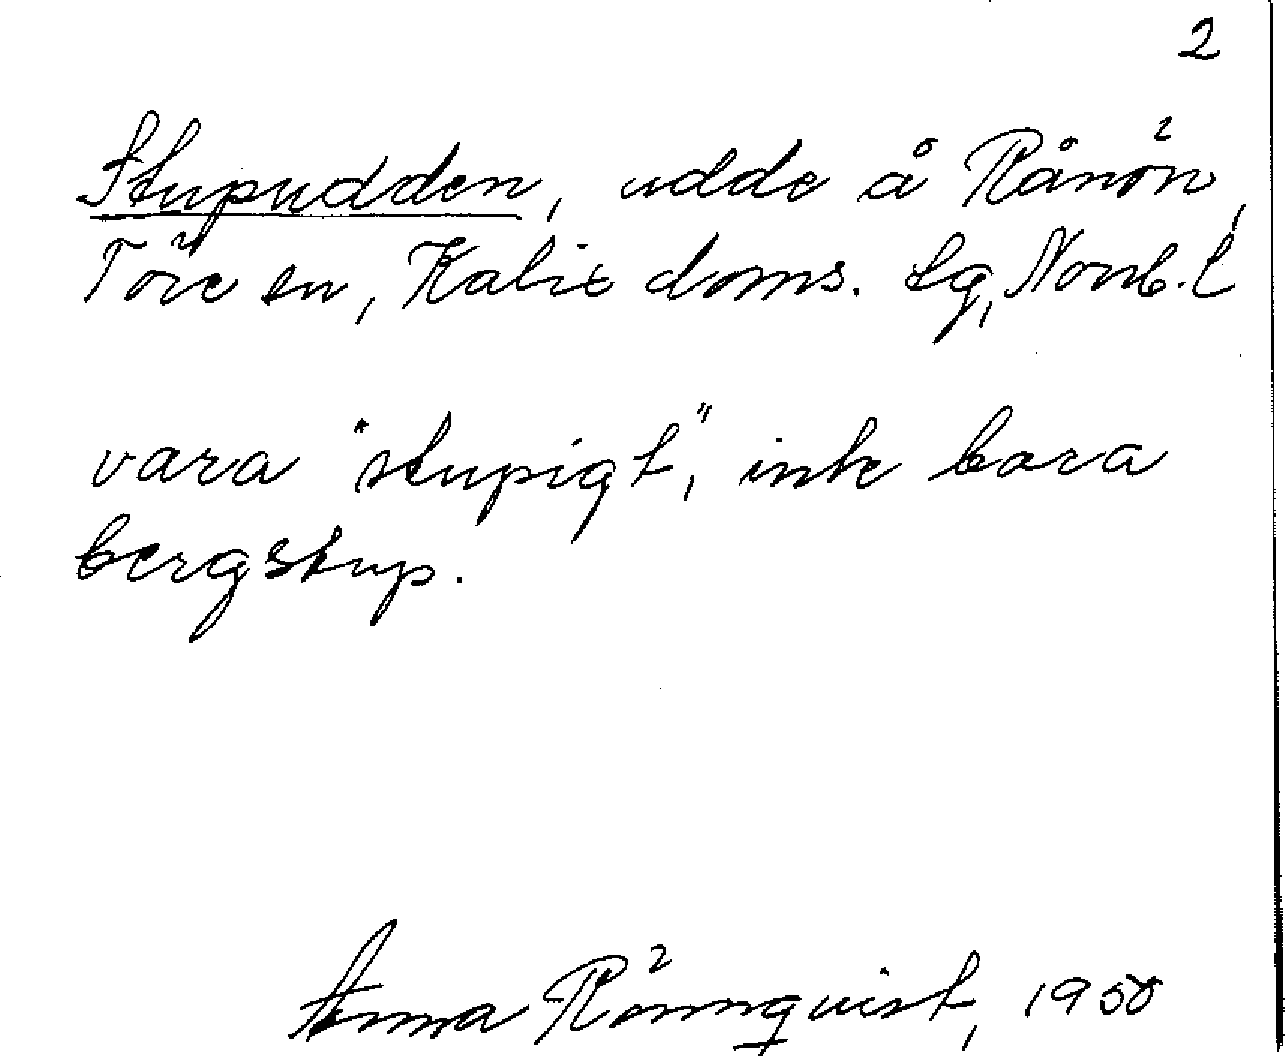 2
Stupudden, udde å Rånön,
Töre sn, Kalix doms. lg, Norrb. l
vara "stupigt", inte bara
bergstup.
Anna Rönnqvist, 1950